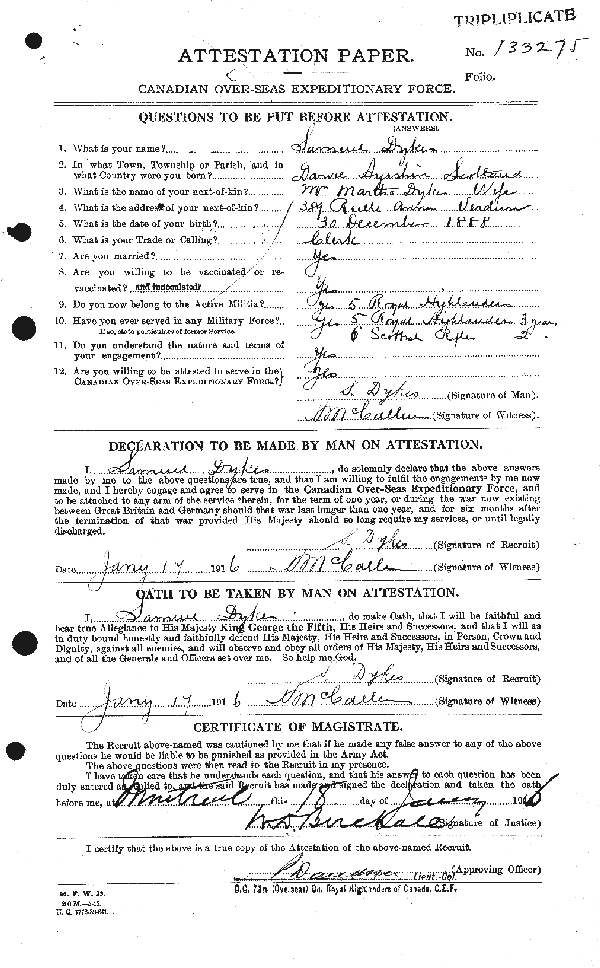 TRIPLIPLICATE
No. 133275
ATTESTATION PAPER.
Folio.
CANADIAN OVER-SEAS EXPEDITIONARY FORCE.
QUESTIONS TO BE PUT BEFORE ATTESTATION.
(ANSWERS)
1. What is your name? Samuel Dykes
2. In what Town, Township or Parish, and in
what Country were you born? Scotland
3. What is the name of your next-of-kin? Mrs Martha Dykes Wife
4. What is the address of your next-of-kin? 389 Verdun
5. What is the date of your birth? 30 December 1888
6. What is your Trade or Calling? Clerk
7. Are you married? Yes
8. Are you willing to be vaccinated or re-
vaccinated? and inoculated? Yes
9. Do you now belong to the Active Militia? Yes 5 Royal Highlanders
10. Have you ever served in any Military Force? Yes 5 Royal Highlanders 3 year
If so, state particulars of former Service. 6 Scottish Rifles
11. Do you understand the nature and terms of
your engagement? Yes
12. Are you willing to be attested to serve in the
CANADIAN OVER-SEAS EXPEDITIONARY FORCE? Yes
S. Dykes (Signature of Man).
McCallum (Signature of Witness).
DECLARATION TO BE MADE BY MAN ON ATTESTATION.
I, Samuel Dykes, do solemnly declare that the above answers
made by me to the above questions are true, and that I am willing to fulfil the engagements by me now
made, and I hereby engage and agree to serve in the Canadian Over-Seas Expeditionary Force, and
to be attached to any arm of the service therein, for the term of one year, or during the war now existing
between Great Britain and Germany should that war last longer than one year, and for six months after
the termination of that war provided His Majesty should so long require my services, or until legally
discharged.
S. Dykes (Signature of Recruit)
Date Jany 17 1916 McCallum (Signature of Witness)
OATH TO BE TAKEN BY MAN ON ATTESTATION.
I, Samuel Dykes, do make Oath, that I will be faithful and
bear true Allegiance to His Majesty King George the Fifth, His Heirs and Successors, and that I will as
in duty bound honestly and faithfully defend His Majesty, His Heirs and Successors, in Person, Crown and
Dignity, against all enemies, and will observe and obey all orders of His Majesty, His Heirs and Successors,
and of all the Generals and Officers set over me. So help me God.
S. Dykes (Signature of Recruit)
Date Jany 17 1916 McCallum (Signature of Witness)
CERTIFICATE OF MAGISTRATE.
The Recruit above-named was cautioned by me that if he made any false answer to any of the above
questions he would be liable to be punished as provided in the Army Act.
The above questions were then read to the Recruit in my presence.
I have taken care that he understands each question, and that his answer to each question has been
duly entered as replied to, and the said Recruit has made and signed the declaration and taken the oath
before me, at Montreal this 18 day of January 1916
(Signature of Justice)
I certify that the above is a true copy of the Attestation of the above-named Recruit.
(Approving Officer)
Lieut-Col.
O.C. 73rd (Overseas) Bn. Royal Highlanders of Canada. C.E.F.
M. F. W. 23.